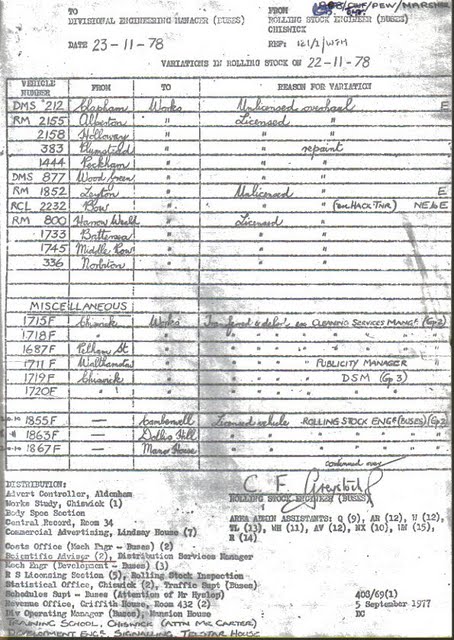 TO FROM ROLLING STOCK ENGINEER (BUSES)
DIVISIONAL ENGINEERING MANAGER (BUSES) CHISWICK
DATE 23-11-78 REF: 121/1/WFH
VARIATIONS IN ROLLING STOCK ON 22-11-78
VEHICLE NUMBER FROM TO REASON FOR VARIATION
DMS 212 Clapham Works Unlicensed overhaul E
RM 2155 Alperton " Licensed "
2158 Holloway " " "
383 Plumstead " " repaint
1444 Peckham " " "
DMS 877 Wood Green " " "
RM 1852 Leyton " Unlicensed " E
RCL 2232 Plow " " " (ex HACK TNR) NE to E
RM 800 Harrow Weald " Licensed "
1733 Battersea " " "
1745 Middle Row " " "
336 Norbiton " " "
MISCELLANEOUS
1715F Chiswick Works Transferred & delvr. ex CLEANING SERVICES MANGR (Gp 2)
1718F " " " " " " " " "
1687F Pelham St " " " " " " " "
1711F Walthamstow " " " " " PUBLICITY MANAGER "
1719F Chiswick " " " " " DSM (Gp 3)
1720F " " " " " " " "
1855F — Camberwell Licensed vehicle ROLLING STOCK ENGR (BUSES) (Gp 2)
1863F — Dollis Hill " " " " " "
1867F — Manor House " " " " " "
continued over
DISTRIBUTION:
Advert Controller, Aldenham ROLLING STOCK ENGINEER (BUSES)
Works Study, Chiswick (1)
Body Spec Section
Central Record, Room 34
Commercial Advertising, Lindsay House (7)
AREA ADMIN ASSISTANTS: Q (9), AR (12), U (12),
TL (13), WH (11), AV (12), NX (10), HW (15),
R (14)
Costs Office (Mech Engr - Buses) (2)
Scientific Advisor (2), Distribution Services Manager
Mech Engr (Development - Buses) (3)
R S Licensing Section (5), Rolling Stock Inspection
Statistical Office, Chiswick (2), Traffic Supt (Buses)
Schedules Supt - Buses (Attention of Mr Hyslop) 400/69(1)
Revenue Office, Griffith House, Room 432 (2) 5 September 1977
Div Operating Manager (Buses), Mansion House
TRAINING SCHOOL, CHISWICK (ATTN MR CARTER)
DEVELOPMENT ENGR. SIGNALLING, TELSTAR HOUSE